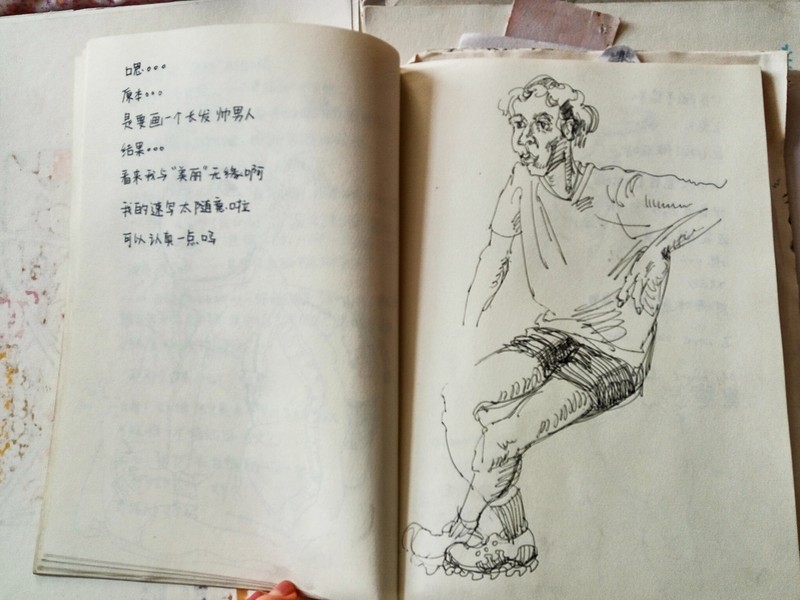 嗯。。。
原本。。。
是要画一个长发帅男人
结果。。。
看来我与“美丽”无缘啊
我的速写太随意啦
可以认真一点吗